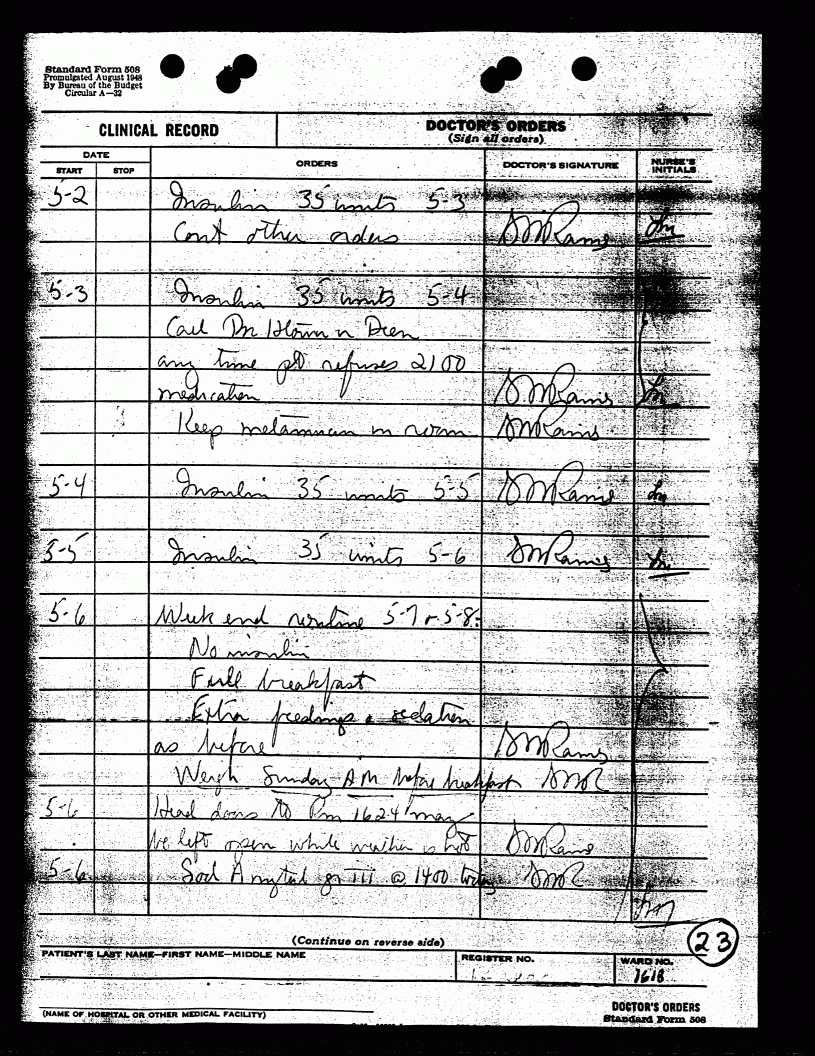 Standard Form 508
Promulgated August 1948
By Bureau of the Budget
Circular A—32
CLINICAL RECORD
DOCTOR'S ORDERS
(Sign all orders)
DATE
START STOP ORDERS DOCTOR'S SIGNATURE NURSE'S INITIALS
5-2 Insulin 35 units 5-3
Cont other orders
5-3 Insulin 35 units 5-4
Call Dr
any time pt refuses 2100
medication
Keep metamucil in room
5-4 Insulin 35 units 5-5
5-5 Insulin 35 units 5-6
5-6 Week end routine 5-7 + 5-8:
No insulin
Full breakfast
Extra feedings & sedation
as before
Weigh Sunday AM before breakfast
5-6 Head doors to Rm 1624 may
be left open while weather is hot
5-6 Sod Amytal gr iii @ 1400 today
23
(Continue on reverse side)
PATIENT'S LAST NAME—FIRST NAME—MIDDLE NAME
REGISTER NO.
WARD NO.
1618
(NAME OF HOSPITAL OR OTHER MEDICAL FACILITY)
DOCTOR'S ORDERS
Standard Form 508